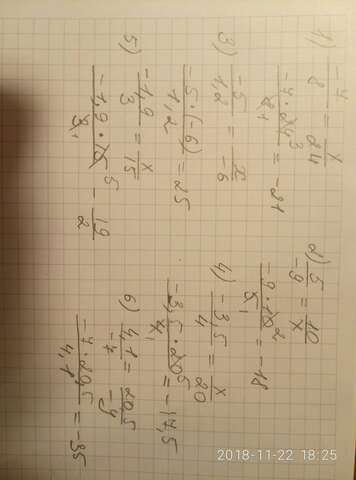 1) -7/8 = x/24
-7·24³/8₁ = -21
2) 5/-9 = 10/x
-9·10²/5₁ = -18
3) -5/1,2 = x/-6
-5·(-6)/1,2 = 25
4) -3,5/4 = x/20
-3,5·20⁵/4₁ = -17,5
5) -1,9/3 = x/15
-1,9·15⁵/3₁ - 19/2
6) 4,1/-7 = 20,5/-y
-7·20,5/4,1 = -35
2018-11-22 18:25